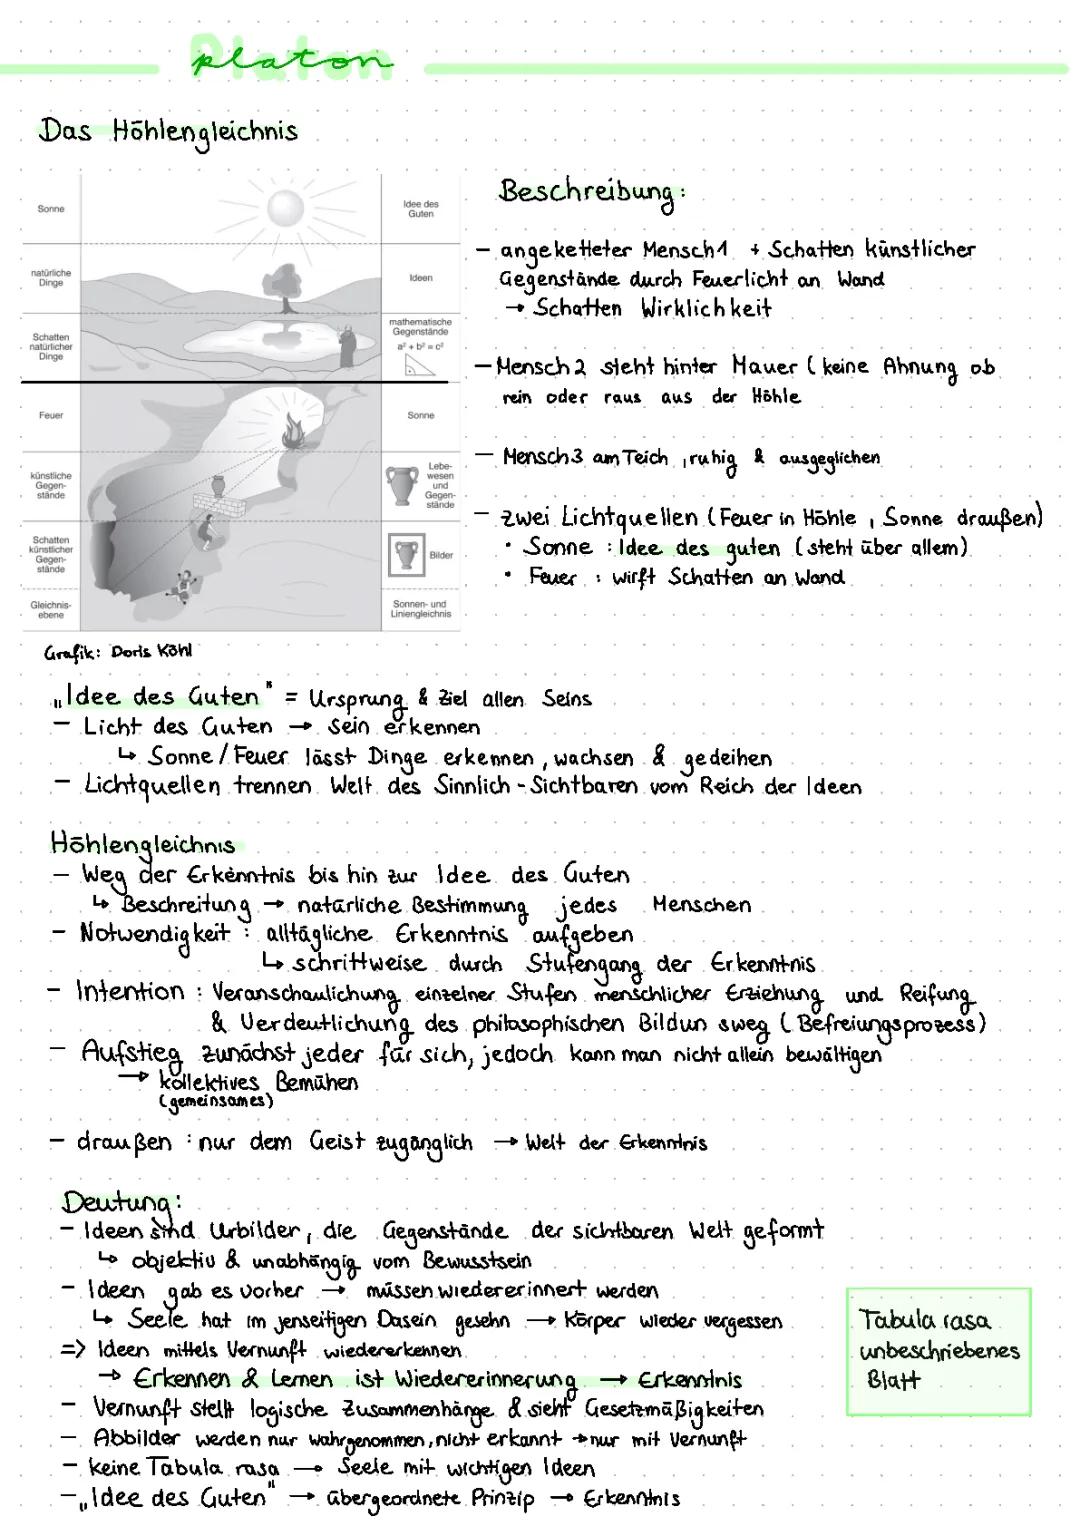 Platon
platon
Das Höhlengleichnis
Sonne
Idee des
Guten
natürliche
Dinge
Ideen
Schatten
natürlicher
Dinge
mathematische
Gegenstände
a² + b² = c²
Feuer
Sonne
künstliche
Gegen-
stände
Lebe-
wesen
und
Gegen-
stände
Schatten
künstlicher
Gegen-
stände
Bilder
Gleichnis-
ebene
Sonnen- und
Liniengleichnis
Grafik: Doris Köhl
Beschreibung:
- angeketteter Mensch1 + Schatten künstlicher
Gegenstände durch Feuerlicht an Wand
→ Schatten Wirklichkeit
- Mensch 2 steht hinter Mauer ( keine Ahnung ob
rein oder raus aus der Höhle
- Mensch 3 am Teich , ruhig & ausgeglichen
- zwei Lichtquellen ( Feuer in Höhle , Sonne draußen)
• Sonne : Idee des guten ( steht über allem)
• Feuer : wirft Schatten an Wand
„Idee des Guten" = Ursprung & Ziel allen Seins
- Licht des Guten → Sein erkennen
↳ Sonne / Feuer lässt Dinge erkennen , wachsen & gedeihen
- Lichtquellen trennen Welt des Sinnlich - Sichtbaren vom Reich der Ideen
Höhlengleichnis
- Weg der Erkenntnis bis hin zur Idee des Guten
↳ Beschreitung → natürliche Bestimmung jedes Menschen
- Notwendigkeit : alltägliche Erkenntnis aufgeben
↳ schrittweise durch Stufengang der Erkenntnis
- Intention : Veranschaulichung einzelner Stufen menschlicher Erziehung und Reifung
& Verdeutlichung des philosophischen Bildun sweg ( Befreiungsprozess)
- Aufstieg zunächst jeder für sich, jedoch kann man nicht allein bewältigen
→ kollektives Bemühen
(gemeinsames)
- draußen : nur dem Geist zugänglich → Welt der Erkenntnis
Deutung:
- Ideen sind Urbilder , die Gegenstände der sichtbaren Welt geformt
↳ objektiv & unabhängig vom Bewusstsein
- Ideen gab es vorher → müssen wiedererinnert werden
↳ Seele hat im jenseitigen Dasein gesehn → Körper wieder vergessen
=> Ideen mittels Vernunft wiedererkennen
→ Erkennen & Lernen ist Wiedererinnerung → Erkenntnis
- Vernunft stellt logische Zusammenhänge & sieht Gesetzmäßigkeiten
- Abbilder werden nur wahrgenommen, nicht erkannt → nur mit Vernunft
- keine Tabula rasa → Seele mit wichtigen Ideen
- „Idee des Guten" → übergeordnete Prinzip → Erkenntnis
Tabula rasa
unbeschriebenes
Blatt